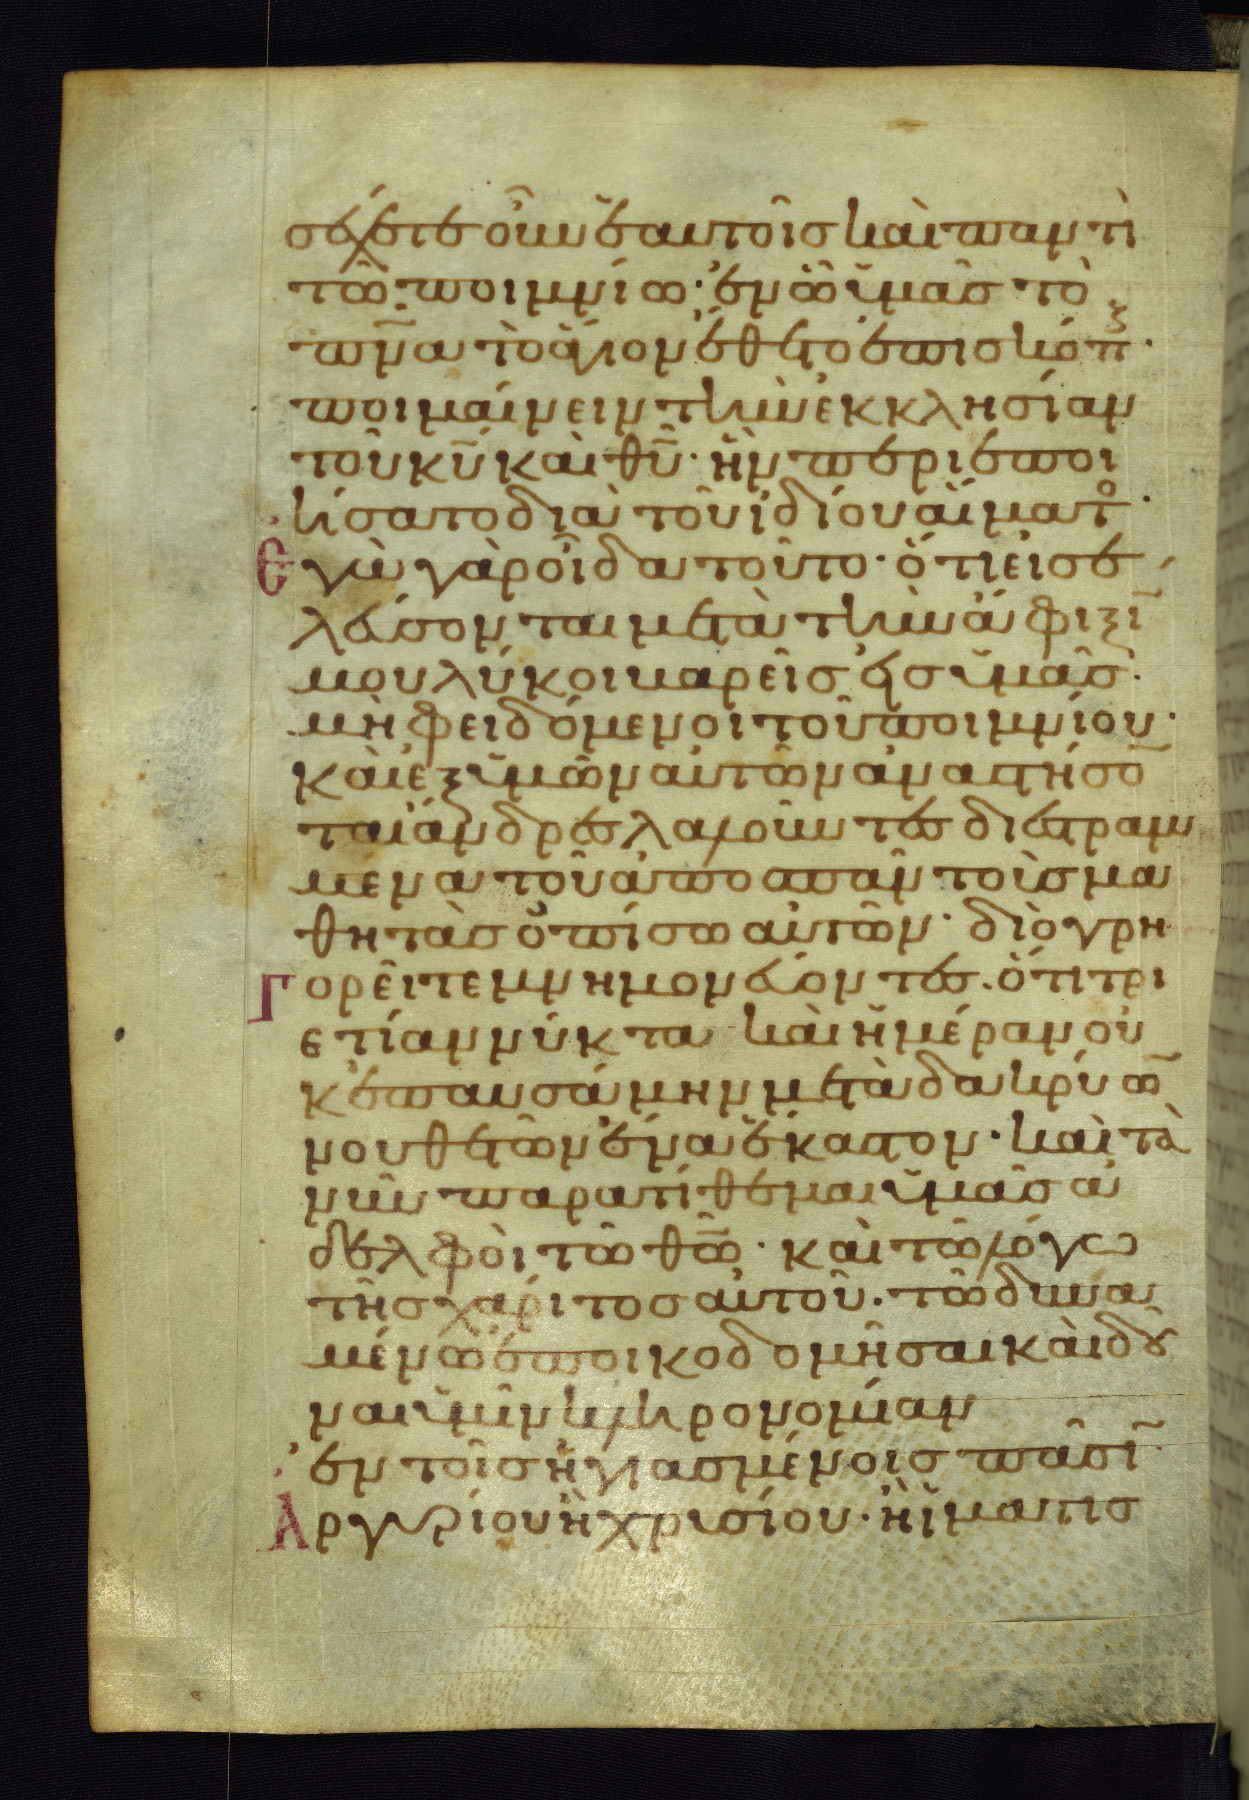 σέχετε οὖν ἑαυτοῖς καὶ παντὶ
τῶ ποιμνίω· ἐν ῶ ὑμᾶς τὸ
πνᾱ τὸ ἅγιον ἔθετο ἐπισκόπ
ποιμαίνειν τὴν ἐκκλησίαν
τοῦ κῡ καὶ θῡ· ἣν περιεποι
ήσατο διὰ τοῦ ἰδίου αἵματο·
Ἐγὼ γὰρ οἶδα τοῦτο· ὅτι εἰσε
λεύσονται μετὰ τὴν ἄφιξί
μου λύκοι βαρεῖς εἰς ὑμᾶς·
μὴ φειδόμενοι τοῦ ποιμνίου·
καὶ ἐξ ὑμῶν αὐτῶν ἀναστήσο
ται ἄνδρες λαλοῦντες διεστραμ
μένα τοῦ ἀποσπᾶν τοὺς μα
θητὰς ὀπίσω αὐτῶν· διὸ γρη
Γορεῖτε μνημονεύοντες· ὅτι τρι
ετίαν νύκτα καὶ ἡμέραν οὐ
κ ἐπαυσάμην μετὰ δακρύω
νουθετῶν ἕνα ἕκαστον· καὶ τὰ
νῦν παρατίθεμαι ὑμᾶς ἀ
δελφοὶ τῶ θῶ̄· καὶ τῶ λόγω
τῆς χάριτος αὐτοῦ· τῶ δυνα
μένω ἐποικοδομῆσαι καὶ δοῦ
ναι ὑμῖν κληρονομίαν
ἐν τοῖς ἡγιασμένοις πᾶσι·
Ἀργυρίου ἢ χρυσίου· ἢ ἱματις